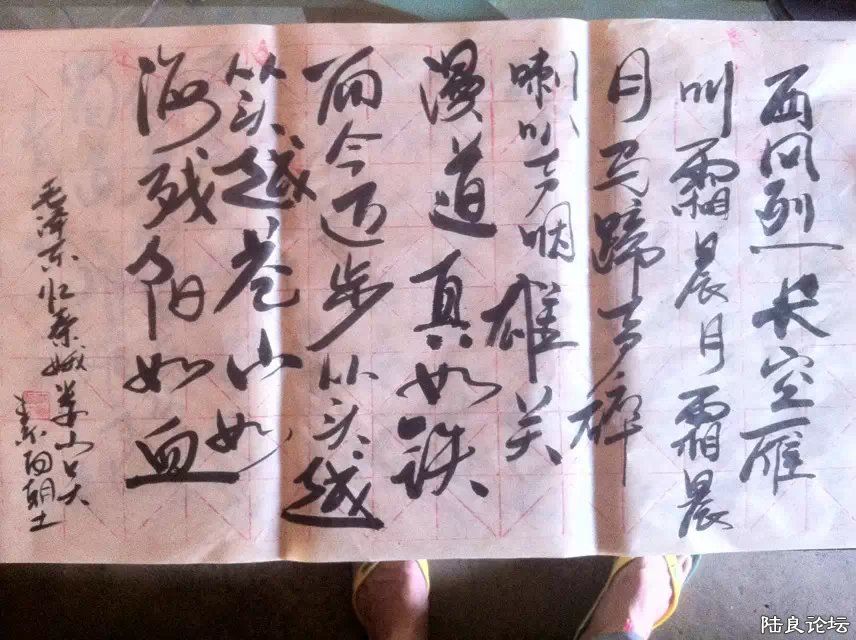 西风烈长空雁
叫霜晨月霜晨
月马蹄声碎
喇叭声咽雄关
漫道真如铁
而今迈步从头越
从头越苍山如
海残阳如血
毛泽东忆秦娥娄山关
陆良论坛